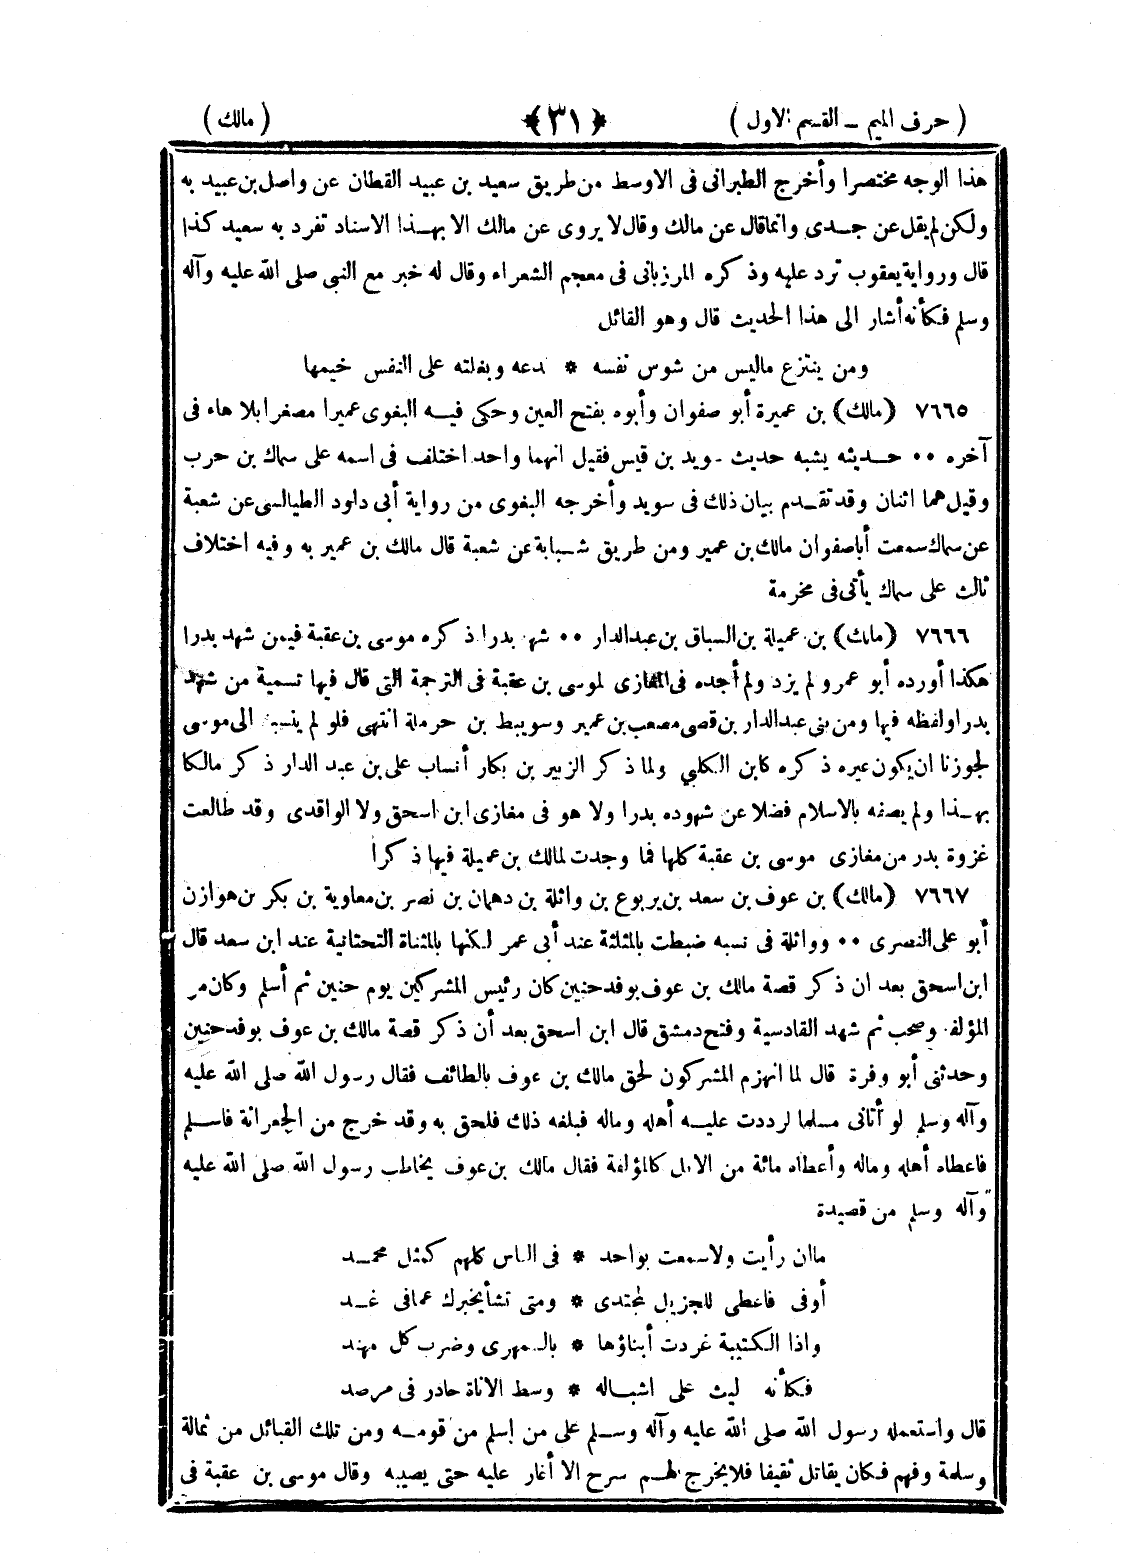 ( حرف الميم ــ القسم الاول ) ﴿٣١﴾ ( مالك )
هذا الوجه مختصرا وأخرج الطبرانى فى الاوسط من طريق سعيد بن عبيد القطان عن واصل بن عبيد به
ولكن لم يقل عن جدى وانما قال عن مالك وقال لا يروى عن مالك الا بهذا الاسناد تفرد به سعيد كذا
قال ورواية يعقوب ترد عليه وذكره المرزبانى فى معجم الشعراء وقال له خبر مع النبى صلى الله عليه وآله
وسلم فكأنه أشار الى هذا الحديث قال وهو القائل
ومن ينتزع ماليس من شوس نفسه * يدعه ويغلته على النفس خيمها
٧٦٦٥ (مالك) بن عميرة أبو صفوان وأبوه بفتح العين وحكى فيه البغوى عميرا مصغرا بلا هاء فى
آخره ٠٠ حديثه يشبه حديث سويد بن قيس فقيل انهما واحد اختلف فى اسمه على سماك بن حرب
وقيل هما اثنان وقد تقدم بيان ذلك فى سويد وأخرجه البغوى من رواية أبى داود الطيالسى عن شعبة
عن سماك سمعت أبا صفوان مالك بن عمير ومن طريق شبابة عن شعبة قال مالك بن عمير به وفيه اختلاف
ثالث على سماك يأتى فى مخرمة
٧٦٦٦ (مالك) بن عميلة بن السباق بن عبد الدار ٠٠ شهد بدرا ذكره موسى بن عقبة فيمن شهد بدرا
هكذا أورده أبو عمر ولم يزد ولم أجده فى المغازى لموسى بن عقبة فى الترجمة التى قال فيها تسمية من شهد
بدرا ولفظه فيها ومن بنى عبد الدار بن قصى مصعب بن عمير وسويبط بن حرملة انتهى فلو لم ينسبه الى موسى
لجوزنا ان يكون غيره ذكره كابن الكلبي ولما ذكر الزبير بن بكار أنساب على بن عبد الدار ذكر مالكا
بهذا ولم يصفه بالاسلام فضلا عن شهوده بدرا ولا هو فى مغازى ابن اسحق ولا الواقدى وقد طالعت
غزوة بدر من مغازى موسى بن عقبة كلها فما وجدت لمالك بن عميلة فيها ذكرا
٧٦٦٧ (مالك) بن عوف بن سعد بن يربوع بن واثلة بن دهمان بن نصر بن معاوية بن بكر بن هوازن
أبو على النصرى ٠٠ وواثلة فى نسبه ضبطت بالمثلثة عند أبى عمر لكنها بالمثناة التحتانية عند ابن سعد قال
ابن اسحق بعد ان ذكر قصة مالك بن عوف بوفد حنين كان رئيس المشركين يوم حنين ثم أسلم وكان من
المؤلفة وصحب ثم شهد القادسية وفتح دمشق قال ابن اسحق بعد أن ذكر قصة مالك بن عوف بوفد حنين
وحدثنى أبو وفرة قال لما انهزم المشركون لحق مالك بن عوف بالطائف فقال رسول الله صلى الله عليه
وآله وسلم لو أتانى مسلما لرددت عليه أهله وماله فبلغه ذلك فلحق به وقد خرج من الجعرانة فاسلم
فاعطاه أهله وماله وأعطاه مائة من الابل كالمؤلفة فقال مالك بن عوف يخاطب رسول الله صلى الله عليه
وآله وسلم من قصيدة
ماان رأيت ولا سمعت بواحد * فى الناس كلهم كمثل محمد
أوفى فاعطى للجزيل لمجتدى * ومتى تشأ يخبرك عما فى غد
واذا الكتيبة غردت أبناؤها * بالسمهرى وضرب كل مهند
فكأنه ليث على اشباله * وسط الاناة حادر فى مرصد
قال واستعمله رسول الله صلى الله عليه وآله وسلم على من اسلم من قومه ومن تلك القبائل من ثمالة
وسلمة وفهم فكان يقاتل ثقيفا فلا يخرج لهم سرح الا أغار عليه حتى يصيبه وقال موسى بن عقبة فى